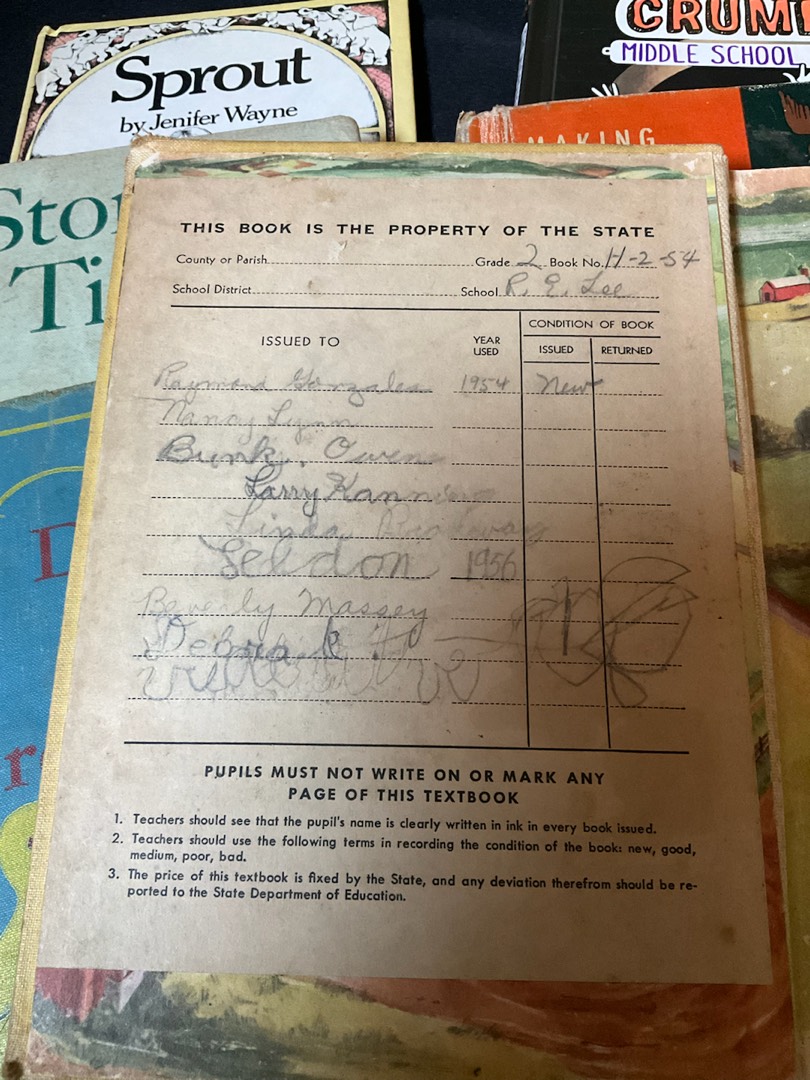 Sprout
by Jenifer Wayne
CRUM
MIDDLE SCHOOL
MAKING
Sto
Ti
D
r
THIS BOOK IS THE PROPERTY OF THE STATE
County or Parish Grade 2 Book No. H-2-54
School District School R. E. Lee
ISSUED TO
YEAR USED
CONDITION OF BOOK
ISSUED RETURNED
Raymond Gonzales 1954 New
Nancy Lynn
Bunk. Owens
Larry
Linda
1956
Beverly Massey
Debra
PUPILS MUST NOT WRITE ON OR MARK ANY
PAGE OF THIS TEXTBOOK
1. Teachers should see that the pupil's name is clearly written in ink in every book issued.
2. Teachers should use the following terms in recording the condition of the book: new, good,
medium, poor, bad.
3. The price of this textbook is fixed by the State, and any deviation therefrom should be re-
ported to the State Department of Education.